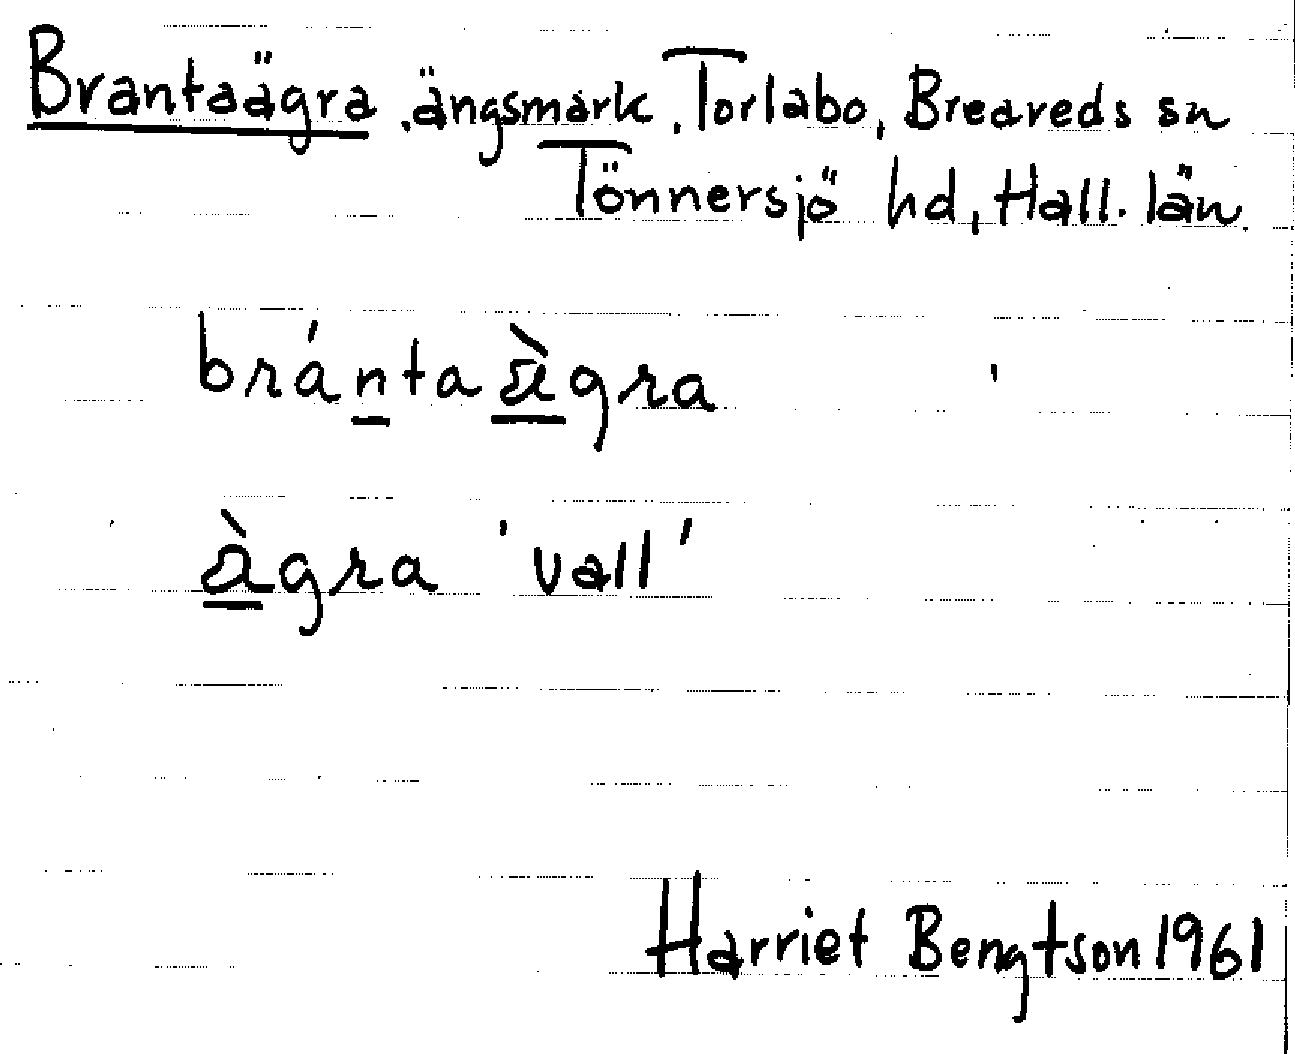 Brantaägra, ängsmark, Torlabo, Breareds sn
Tönnersjö hd, Hall. län.
bránta ä̀gra
ä̀gra 'vall'
Harriet Bengtson 1961